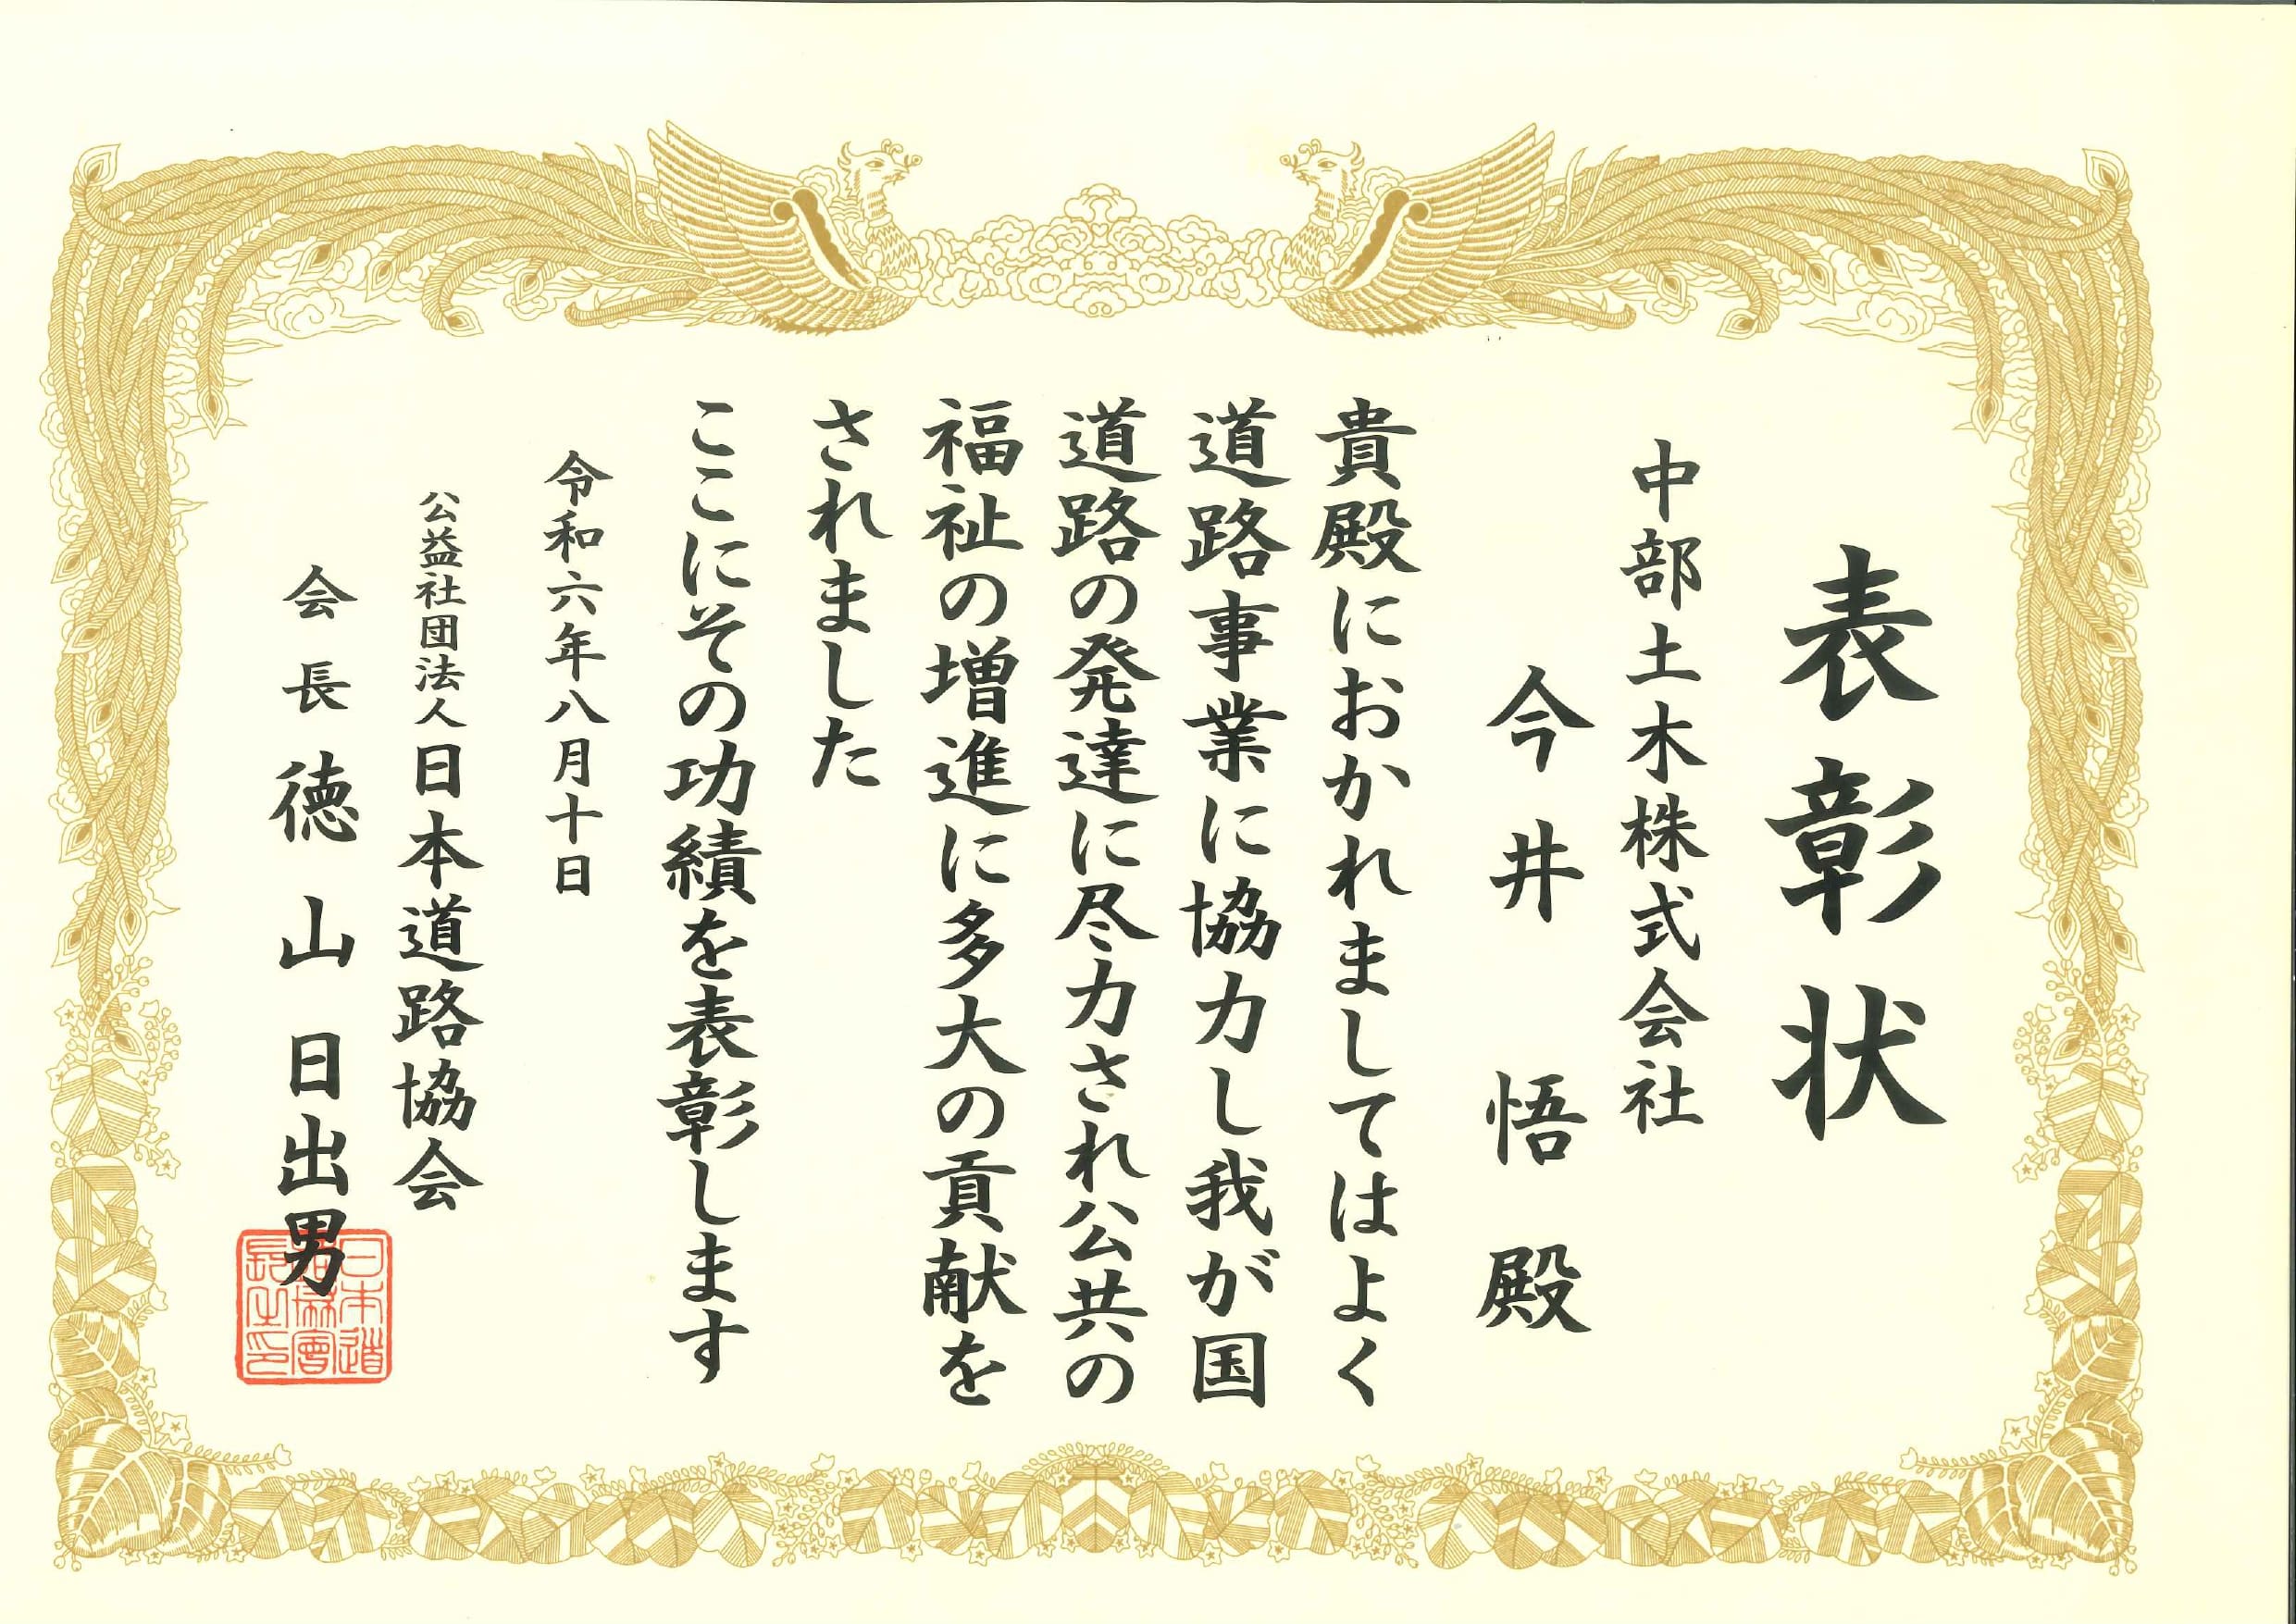 表彰状
中部土木株式会社
今井 悟 殿
貴殿におかれましてはよく
道路事業に協力し我が国
道路の発達に尽力され公共の
福祉の増進に多大の貢献を
されました
ここにその功績を表彰します
令和六年八月十日
公益社団法人日本道路協会
会長 徳山日出男
日本道
路協會
長之印